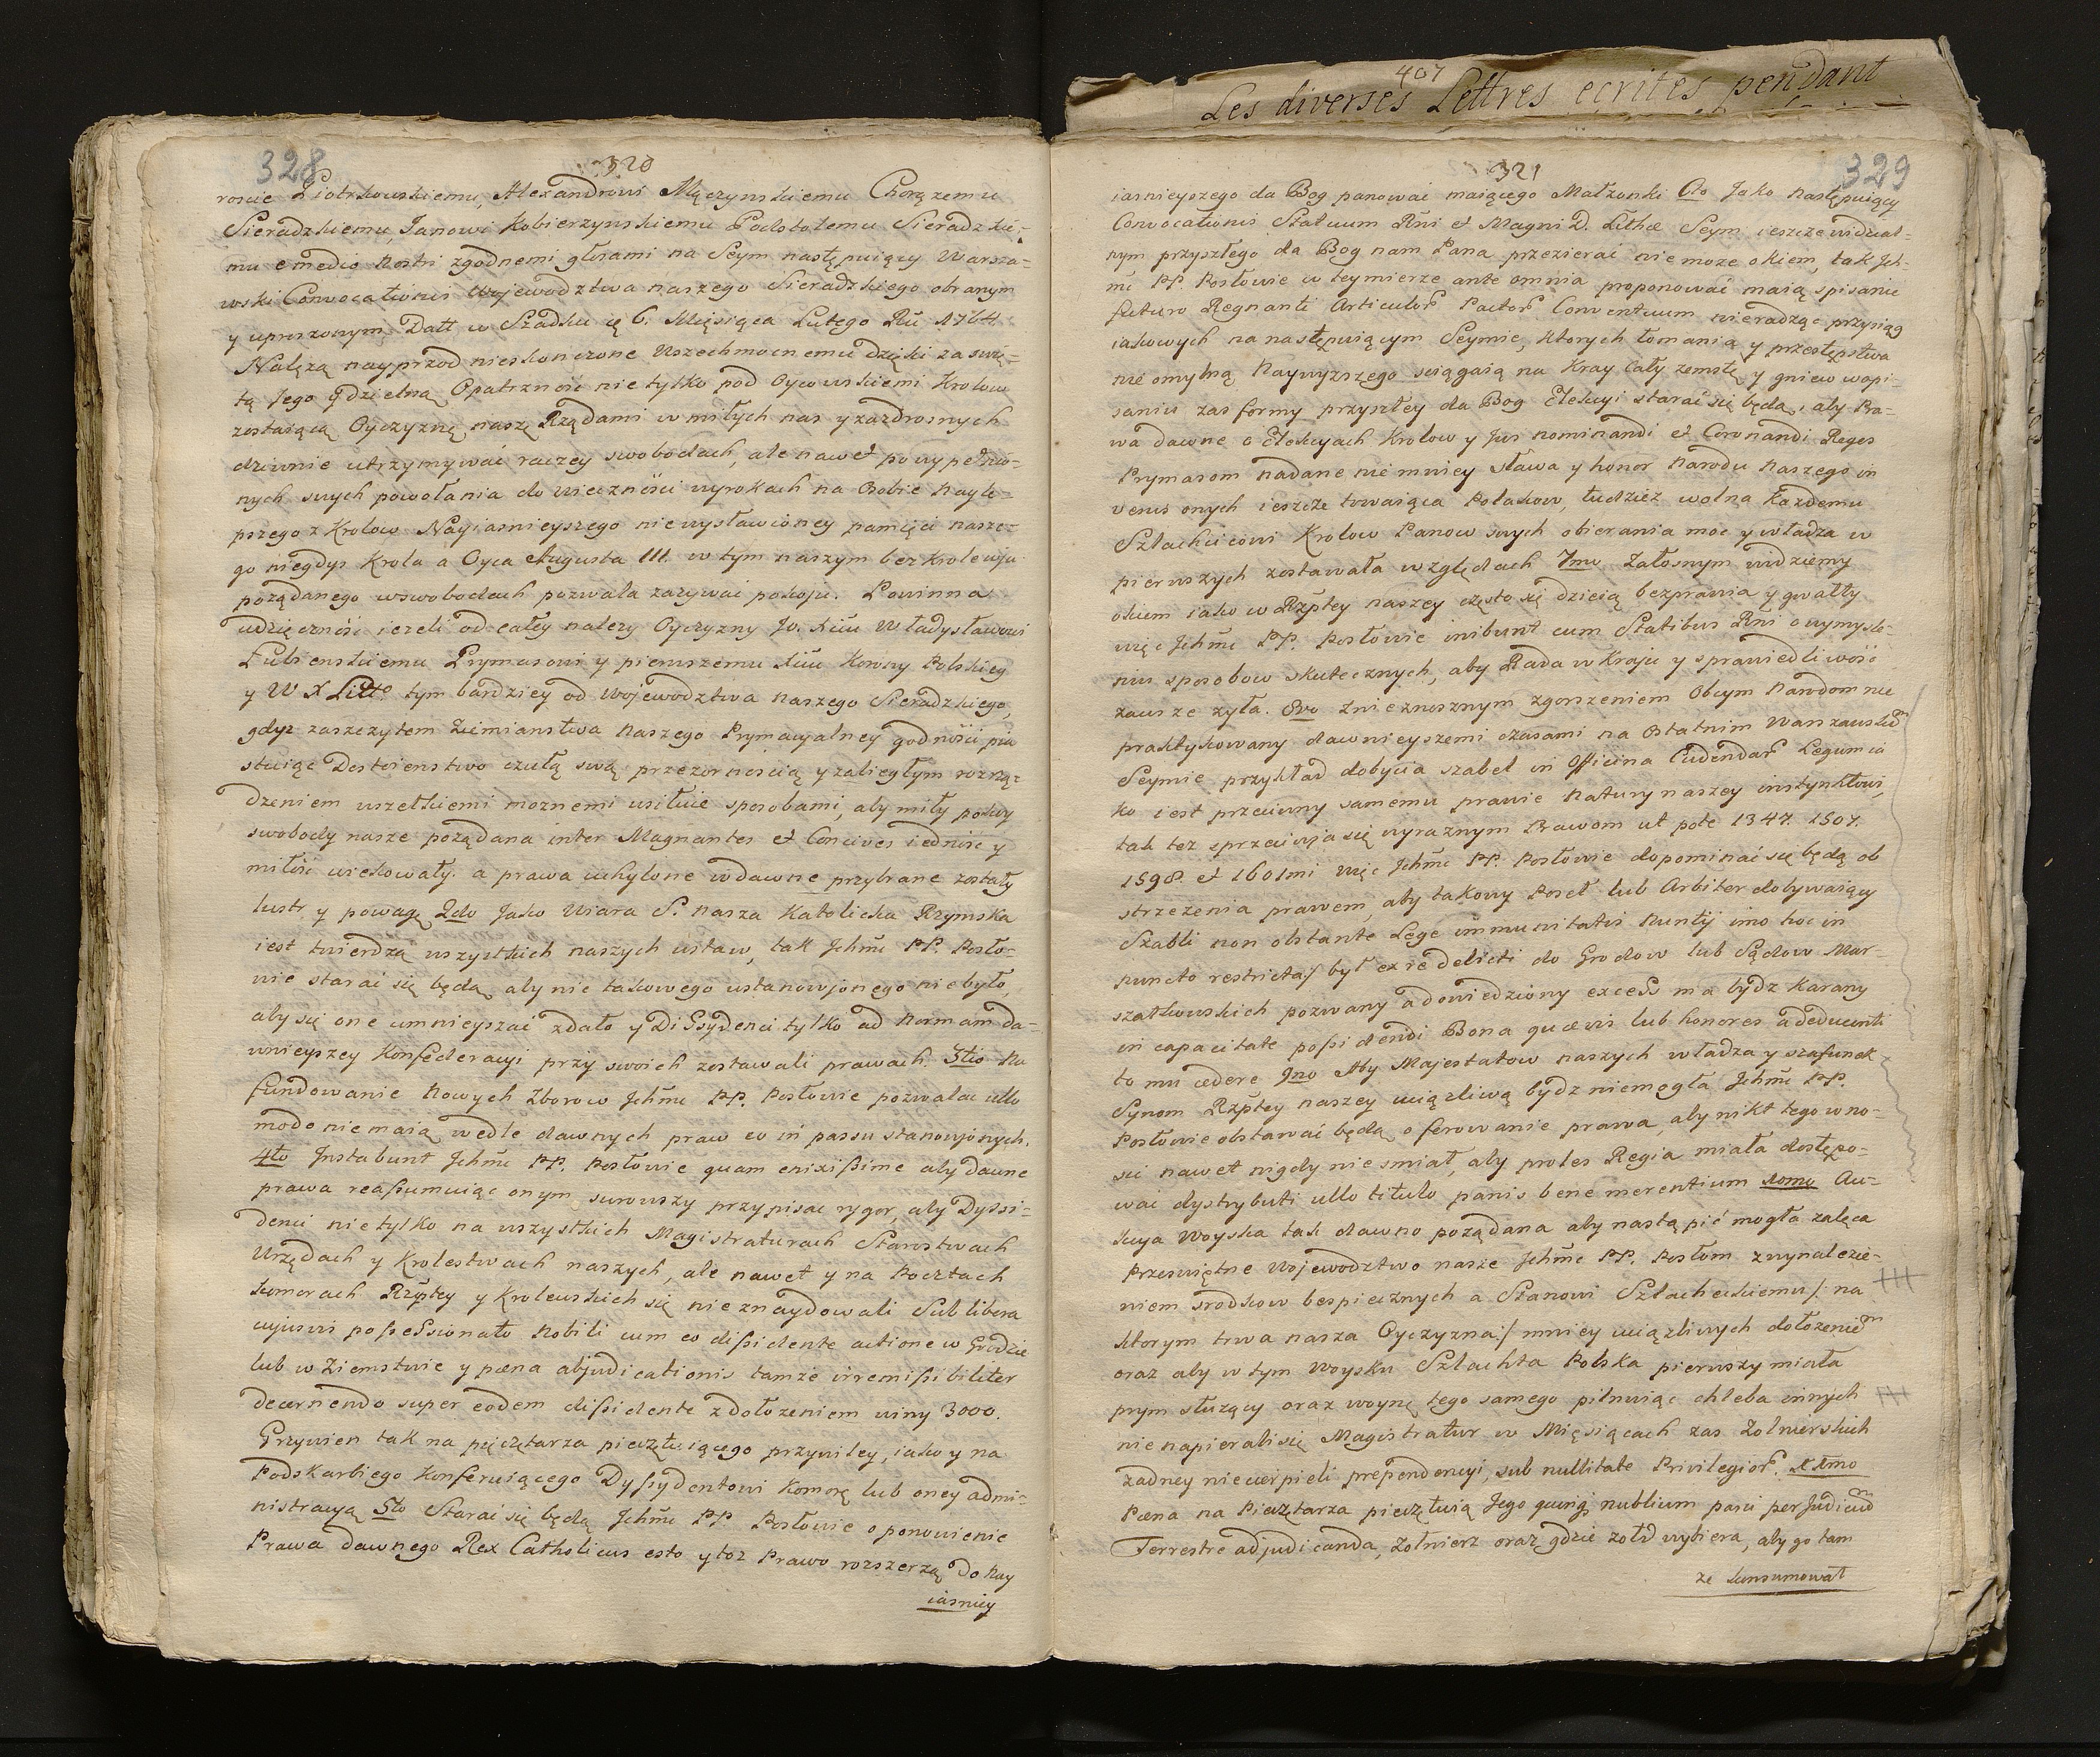 328
320
roscie Piotrkowskiemu, Alexandrowi Męczynskiemu Chorązemu
Sieradzkiemu, Janowi Kobierzynskiemu Podstolemu Sieradzkie-
mu e medio nostri zgodnemi głosami na Seym następuiący Warsza-
wski Convocationis Wojewodztwa naszego Sieradzkiego obranym
y uproszonym Datt w Szadku d 6. Miesiąca Lutego Ru 1764
Nalezą nayprzod nieskonczone Wszechmocnemu dzięki za swię-
tą Jego y dzielną Opatrznosc nie tylko pod Oycowskiemi Krolow
zostaiącą Oyczyznę naszę Rządami w miłych nas y zazdrosnych
dziwnie utrzymywac raczey swobodach, ale nawet po wypełnio-
nych swych powołania do wiecznosci wyrokach na Osobie Nayle-
pszego z Krolow Nayiasnieyszego niewysławioney pamięci nasze-
go niegdys Krola a Oyca Augusta III. w tym naszym bezkrolewju
poządanego w swobodach pozwala zazywac pokoju. Powinna
wdzięcznosc iezeli od całey nalezy Oyczyzny Jo. Xciu Władysławowi
Łubienskiemu Prymasowi y pierwszemu Xciu Korony Polskiey
y W X Litto tym bardziey od Wojewodztwa naszego Sieradzkiego,
gdyz zaszczytem Ziemianstwa naszego Prymacyalney godnosci pia
stuiąc Dostoienstwo czułą swą przezornoscią y zaliegłym rozrzą-
dzeniem wszelkiemi moznemi usiłuie sposobami, aby miły pokoy
swobody nasze poządana inter Magnantes et Concives iednosc y
miłosc wiekowały. a prawa uchylone w dawne przybrane zostały
lustr y powagę 2do Jako Wiara S. nasza Katolicka Rzymska
iest twierdzą wszystkich naszych ustaw, tak Jchmc PP. Posło-
wie starac się będą, aby nic takowego ustanowjonego nie było,
aby się one umnieyszac zdało y Dissydenci tylko ad normam da-
wnieyszey Konfederacyi przy swoich zostawali prawach. 3tio Na
fundowanie Nowych Zborow Jchmc PP. Posłowie pozwalac ullo
modo nie maią wedle dawnych praw eo in passu stanowjonych.
4to Instabunt Jchmc PP. Posłowie quam enixissime aby dawne
prawa reassumuiąc onym surowszy przypisac rygor, aby Dyssi-
denci nie tylko na wszystkich Magistraturach Starostwach
Urzędach y Krolestwach naszych, ale nawet y na Pocztach
komorach Rzptey y Krolewskich się nie znaydowali Sub libera
cujusvis possessionato Nobili cum eo dissidente actione w Grodzie
lub w Ziemstwie y pæna abjudicationis tamze irremissibiliter
decernendo super eodem dissidente z dołozeniem winy 3000.
Grzywien tak na pieczętarza pieczętuiącego przywiley, iako y na
Podskarbiego Konferuiącego Dyssydentowi Komorę lub oney admi-
nistracyą 5to Starac się będą Jchmc PP Posłowie o ponowienie
Prawa dawnego Rex Catholicus esto y toz Prawo rozszerzą do Nay
iasniey
407
Les diverses Lettres ecrites pendant
321
329
iasnieyszego da Bog panowac maiącego Małzonki 6to Jako Następuiący
Convocationis Statuum Rni et Magni D. Lithæ Seym ieszcze widzial-
nym przyszłego da Bog nam Pana przezierac nie moze okiem, tak Jch-
mc PP. Posłowie w teymierze ante omnia proponowac maią spisanie
futuro Regnanti Articulor Pactor Conventuum nieradząc przysiąg
iakowych na następuiącym Seymie, ktorych łomanią y przestępstwa
nieomylną Naywyzszego sciągaią na Kray Cały zemstę y gniew w opi-
saniu zas formy przyszłey da Bog Elekcyi starac się będą, aby Pra-
wa dawne o Elekcyach Krolow y Jus nominandi et Coronandi Reges
Prymasom nadane niemniey sława y honor Narodu Naszego in
versus onych ieszcze trwaiąca Polakow, tudziez wolna kazdemu
Szlachcicowi Krolow Panow swych obierania moc y władza w
pierwszych zostawała względach 7mo Załosnym widziemy
okiem iako w Rzptey naszey często się dzieią bezprawia y gwałty
więc Jchmc PP. Posłowie inibunt cum Statibus Rni o wymysle-
niu sposobow skutecznych, aby Rada w Kraju y sprawiedliwosc
zawsze zyła. 8vo Znieznosznym zgorszeniem Obcym Narodom nie
praktykowany dawnieyszemi czasami na Ostatnim Warszawskim
Seymie przykład dobycia szabel in Officina Cudendar Legum ia
ko iest przeciwny samemu prawie Natury naszey instynktowi,
tak tez sprzeciwja się wyraznym Prawom ut pote 1347. 1507.
1598. et 1601mi więc Jchmc PP. Posłowie dopominac się będą ob
strzezenia prawem, aby takowy Poseł lub Arbiter dobywaiący
Szabli non obstante Lege immunitatis Nuntij imo hoc in
puncto restricta/ był ex re delicti do Grodow lub Sądow Mar-
szałkowskich pozwany a dowiedziony excess ma bydz karany
in capacitate possidendi Bona quævis lub honores a deducenti
to mu cedere 9no Aby Majestatow naszych władza y szafunek
Synom Rzptey naszey uciązliwą bydz niemogła Jchmc PP.
Posłowie obstawac będą o ferowanie prawa, aby nikt tego wno-
sic nawet nigdy nie smiał, aby proles Regia miała dostępo-
wac dystrybuti ullo titulo panis bene merentium Xmo Au-
kcya Woyska tak dawno poządana aby nastąpić mogła zaleca
Przeswiętne Wojewodztwo nasze Jchmc PP. Posłom z wynalezie-
niem srodkow bespiecznych a Stanowi Szlacheckiemu/: na
ktorym trwa nasza Oyczyzna:/ mniey uciązliwych dołozeniem
oraz aby w tym Woysku Szlachta Polska pierwszy miała
prym słuzący oraz woynę tego samego pilnuiąc chleba innych
nie napierali się Magistratur w Miesiącach zas Zołnierskich
zadney niecierpieli prependencyi, sub nullitate Privilegior. XImo
Pæna na Pieczętarza pieczętuią Jego
Terrestre adjudicanda, Zołnierz oraz gdzie zołd wybiera, aby go tam
ze konsumował